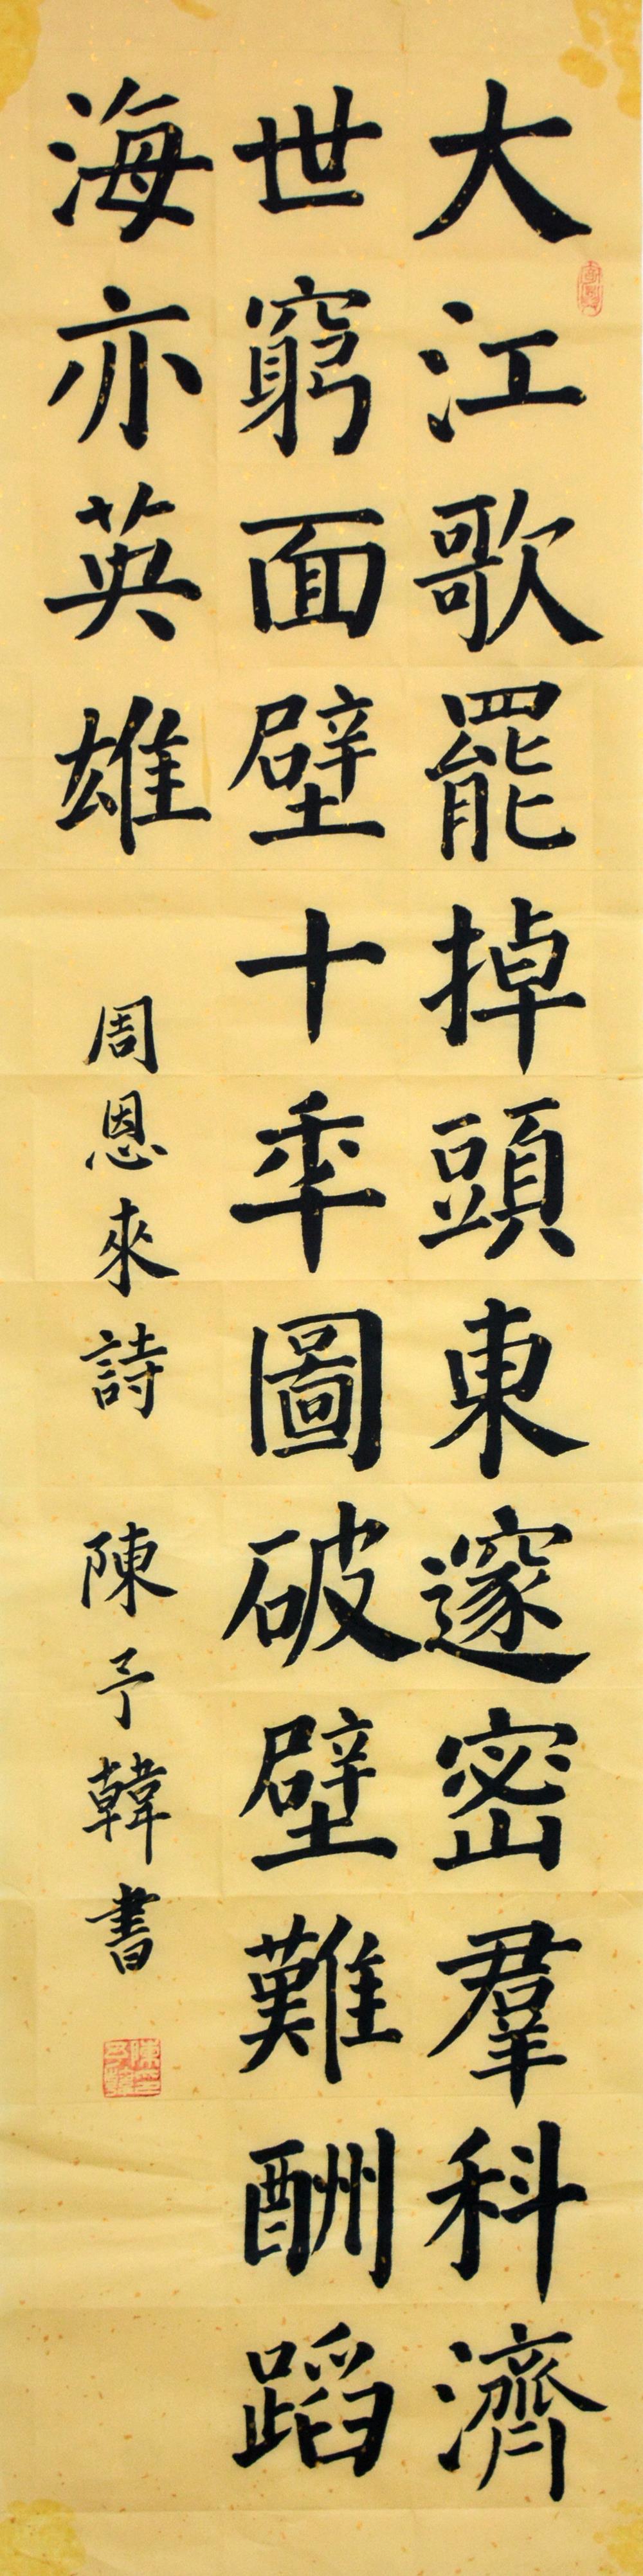 大江歌罷掉頭東邃密羣科濟
世窮面壁十秊圖破壁難酬蹈
海亦英雄
周恩來詩 陳予韓書